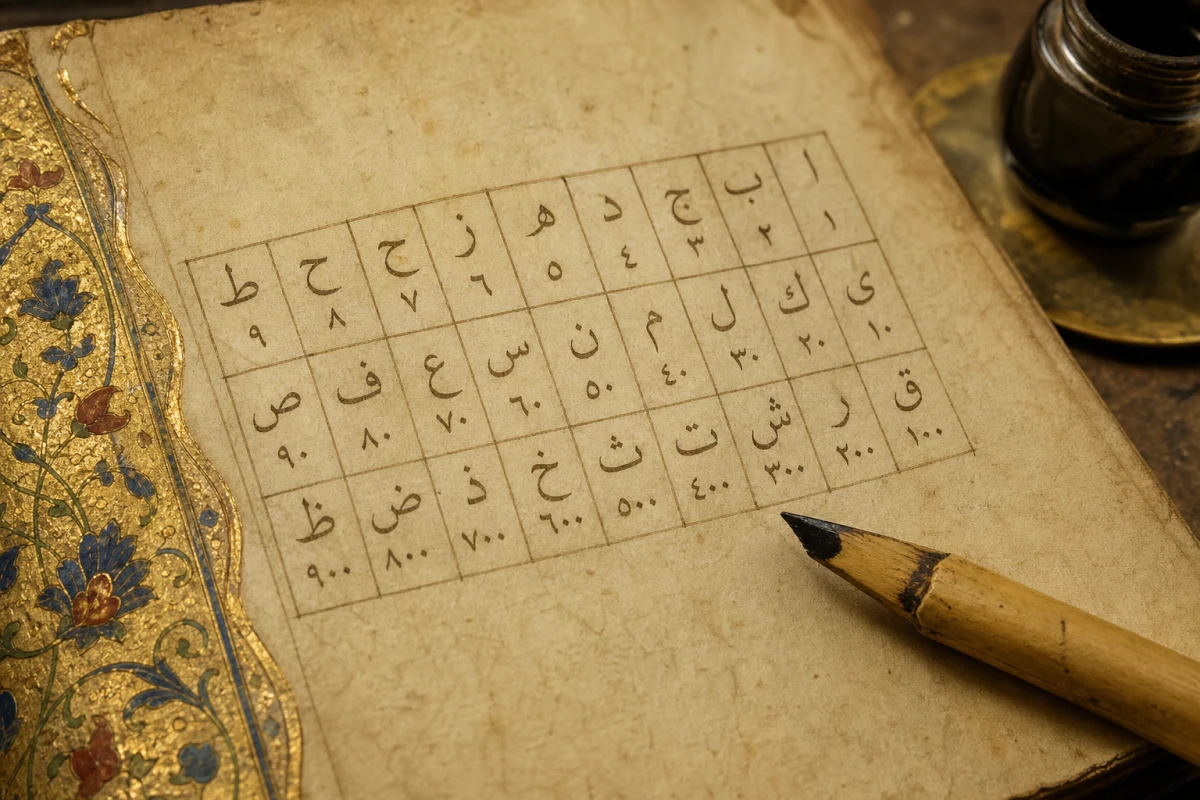 ا ب ج د ه ز ح ح ط
١ ٢ ٣ ٤ ٥ ٦ ٧ ٨ ٩
ى ك ل م ن س ع ف ص
١٠ ٢٠ ٣٠ ٤٠ ٥٠ ٦٠ ٧٠ ٨٠ ٩٠
ق ر ش ت ث خ ذ ض ظ
١٠٠ ٢٠٠ ٣٠٠ ٤٠٠ ٥٠٠ ٦٠٠ ٧٠٠ ٨٠٠ ٩٠٠